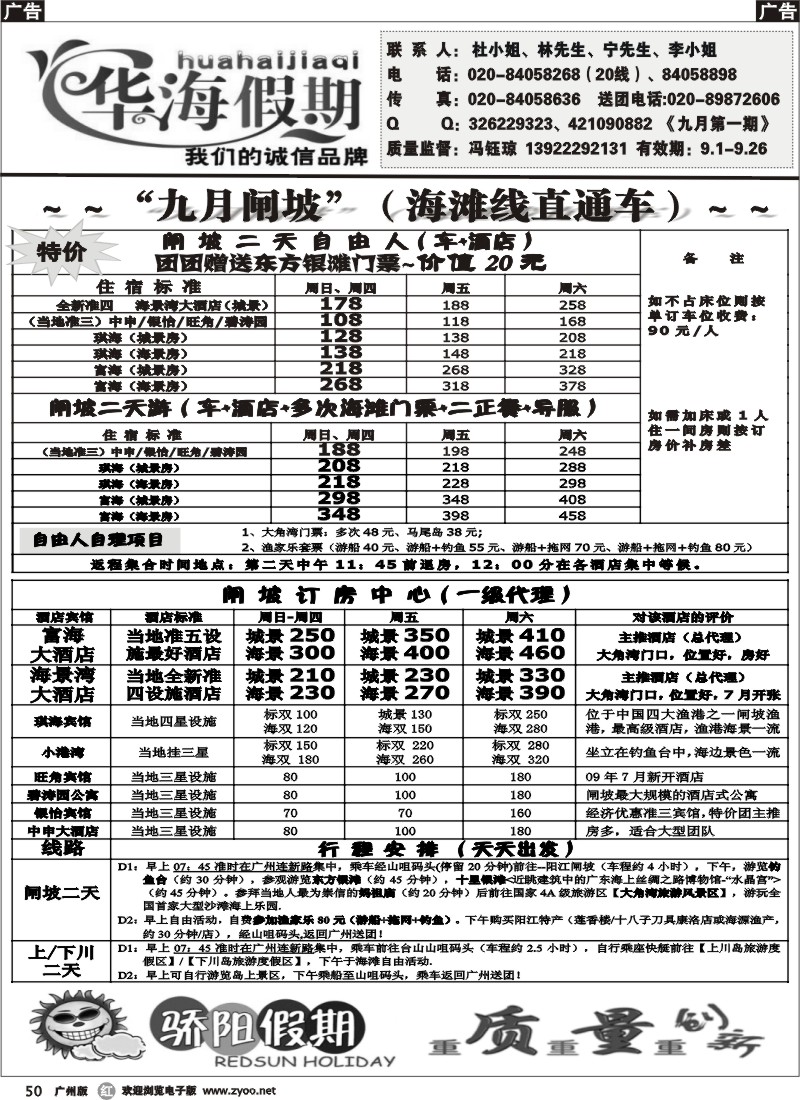 广告
广告
huahaijiaqi
华海假期
我们的诚信品牌
联 系 人：杜小姐、林先生、宁先生、李小姐
电 话：020-84058268（20线）、84058898
传 真：020-84058636 送团电话:020-89872606
Q Q：326229323、421090882 《九月第一期》
质量监督：冯钰琼 13922292131 有效期：9.1-9.26
～～“九月闸坡”（海滩线直通车）～～
特价
闸坡二天自由人（车+酒店）
团团赠送东方银滩门票~价值 20 元
备 注
住 宿 标 准 周日、周四 周五 周六
全新准四 海景湾大酒店（城景） 178 188 258
（当地准三）中申/银怡/旺角/碧涛园 108 118 168
琪海（城景房） 128 138 208
琪海（海景房） 138 148 218
富海（城景房） 218 268 328
富海（海景房） 268 318 378
如不占床位则按
单订车位收费：
90 元/人
闸坡二天游（车+酒店+多次海滩门票+二正餐+导服）
住 宿 标 准 周日、周四 周五 周六
（当地准三）中申/银怡/旺角/碧涛园 188 198 248
琪海（城景房） 208 218 288
琪海（海景房） 218 228 298
富海（城景房） 298 348 408
富海（海景房） 348 398 458
如需加床或 1 人
住一间房则按订
房价补房差
自由人自理项目
1、大角湾门票：多次 48 元、马尾岛 38 元;
2、渔家乐套票（游船 40 元、游船+钓鱼 55 元、游船+拖网 70 元、游船+拖网+钓鱼 80 元）
返程集合时间地点：第二天中午 11：45 前退房，12：00 分在各酒店集中等候。
闸坡订房中心（一级代理）
酒店宾馆 酒店标准 周日-周四 周五 周六 对该酒店的评价
富海 当地准五设 城景 250 城景 350 城景 410 主推酒店（总代理）
大酒店 施最好酒店 海景 300 海景 400 海景 460 大角湾门口，位置好，房好
海景湾 当地全新准 城景 210 城景 230 城景 330 主推酒店（总代理）
大酒店 四设施酒店 海景 230 海景 270 海景 390 大角湾门口，位置好，7 月开张
琪海宾馆 当地四星设施 标双 100 城景 130 标双 250 位于中国四大渔港之一闸坡渔
海双 120 海双 150 海双 280 港，最高级酒店，渔港海景一流
小港湾 当地挂三星 标双 150 标双 220 标双 280 坐立在钓鱼台中，海边景色一流
海双 180 海双 260 海双 320
旺角宾馆 当地三星设施 80 100 180 09 年 7 月新开酒店
碧涛园公寓 当地三星设施 80 100 180 闸坡最大规模的酒店式公寓
银怡宾馆 当地三星设施 70 70 160 经济优惠准三宾馆,特价团主推
中申大酒店 当地三星设施 80 100 180 房多，适合大型团队
线路 行程安排（天天出发）
闸坡二天
D1：早上 07：45 准时在广州连新路集中，乘车经山咀码头(停留 20 分钟)前往--阳江闸坡（车程约 4 小时），下午，游览钓
鱼台（约 30 分钟），参观游览东方银滩（约 45 分钟），十里银滩<近眺建筑中的广东海上丝绸之路博物馆-“水晶宫”>
（约 45 分钟）。参拜当地人最为崇信的妈祖庙（约 20 分钟）后前往国家 4A 级旅游区【大角湾旅游风景区】，游玩全
国首家大型沙滩海上乐园.
D2：早上自由活动，自费参加渔家乐 80 元（游船+拖网+钓鱼）。下午购买阳江特产（莲香楼/十八子刀具康洛店或海源渔产，
约 30 分钟/店），经山咀码头,返回广州送团！
上/下川
二天
D1：早上 07：45 准时在广州连新路集中，乘车前往台山山咀码头（车程约 2.5 小时），自行乘座快艇前往【上川岛旅游度
假区】/【下川岛旅游度假区】，下午于海滩自由活动.
D2：早上可自行游览岛上景区，下午乘船至山咀码头，乘车返回广州送团！
骄阳假期
REDSUN HOLIDAY
重质重量重创新
50 广州版 红 欢迎浏览电子版 www.zyoo.net